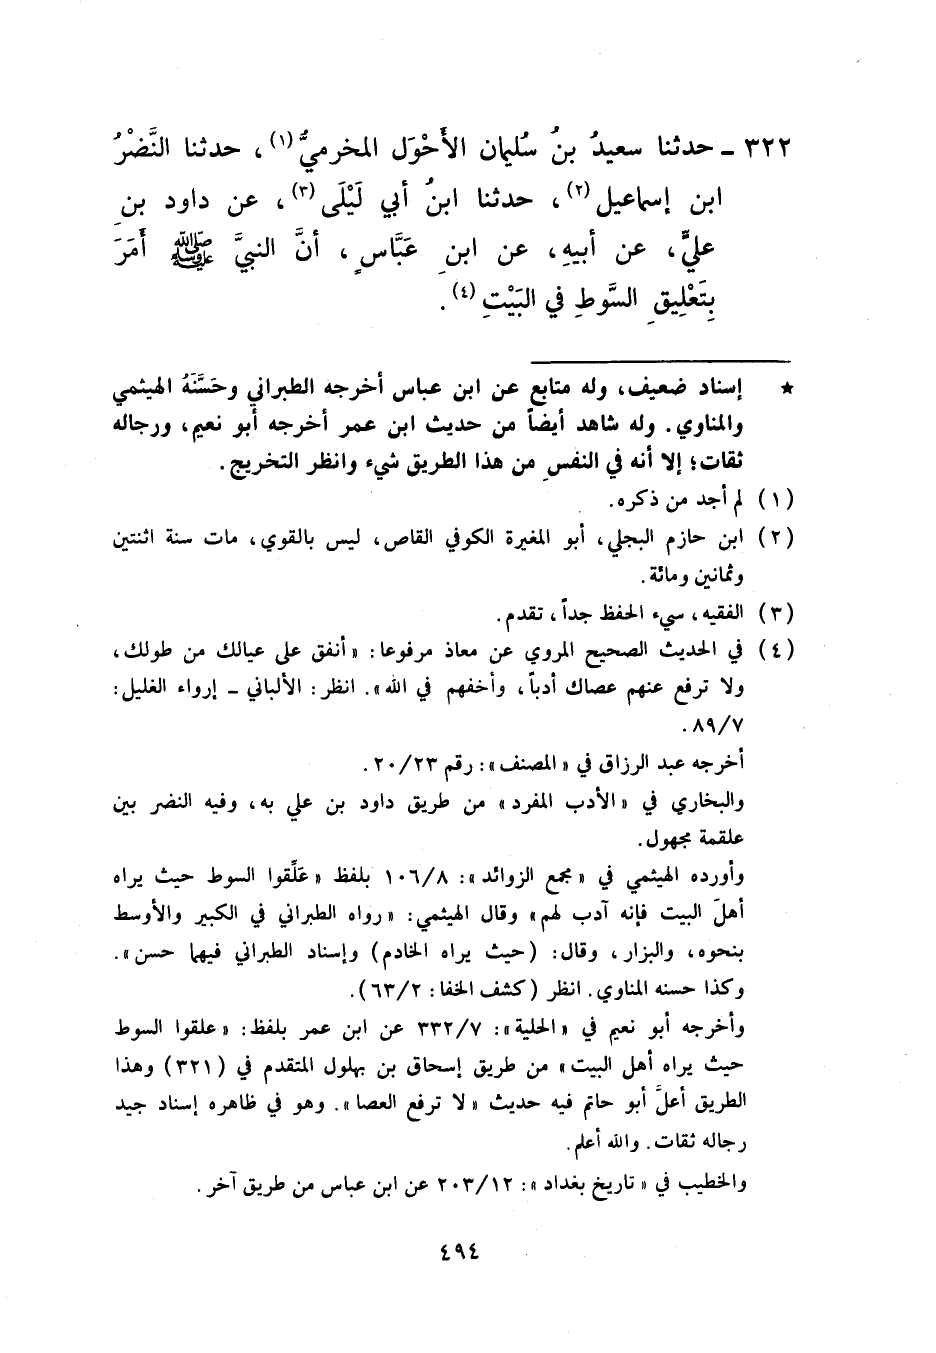 ٣٢٢ - حدثنا سعيدُ بنُ سُليمان الأَحْوَل المخرميُّ (١)، حدثنا النَّضْرُ
ابن إسماعيل (٢)، حدثنا ابنُ أبي لَيْلَى (٣)، عن داود بنِ
عليٍّ، عن أبيهِ، عن ابنِ عَبَّاسٍ، أنَّ النبيَّ ﷺ أَمَرَ
بِتَعْلِيقِ السَّوطِ في البَيْتِ (٤).
★ إسناد ضعيف، وله متابع عن ابن عباس أخرجه الطبراني وحَسَّنَهُ الهيثمي
والمناوي. وله شاهد أيضاً من حديث ابن عمر أخرجه أبو نعيم، ورجاله
ثقات؛ إلا أنه في النفسِ من هذا الطريق شيء وانظر التخريج.
(١) لم أجد من ذكره.
(٢) ابن حازم البجلي، أبو المغيرة الكوفي القاص، ليس بالقوي، مات سنة اثنتين
وثمانين ومائة.
(٣) الفقيه، سيء الحفظ جداً، تقدم.
(٤) في الحديث الصحيح المروي عن معاذ مرفوعا: «أنفق على عيالك من طولك،
ولا ترفع عنهم عصاك أدباً، وأخفهم في الله». انظر: الألباني - إرواء الغليل:
٨٩/٧.
أخرجه عبد الرزاق في «المصنف»: رقم ٢٠/٢٣.
والبخاري في «الأدب المفرد» من طريق داود بن علي به، وفيه النضر بين
علقمة مجهول.
وأورده الهيثمي في «مجمع الزوائد»: ١٠٦/٨ بلفظ «عَلِّقوا السوط حيث يراه
أهلَ البيت فإنه آدب لهم» وقال الهيثمي: «رواه الطبراني في الكبير والأوسط
بنحوه، والبزار، وقال: (حيث يراه الخادم) وإسناد الطبراني فيهما حسن».
وكذا حسنه المناوي. انظر (كشف الخفا: ٦٣/٢).
وأخرجه أبو نعيم في «الحلية»: ٣٣٢/٧ عن ابن عمر بلفظ: «علقوا السوط
حيث يراه أهل البيت» من طريق إسحاق بن بهلول المتقدم في (٣٢١) وهذا
الطريق أعلَّ أبو حاتم فيه حديث «لا ترفع العصا». وهو في ظاهره إسناد جيد
رجاله ثقات. والله أعلم.
والخطيب في «تاريخ بغداد»: ٢٠٣/١٢ عن ابن عباس من طريق آخر.
٤٩٤